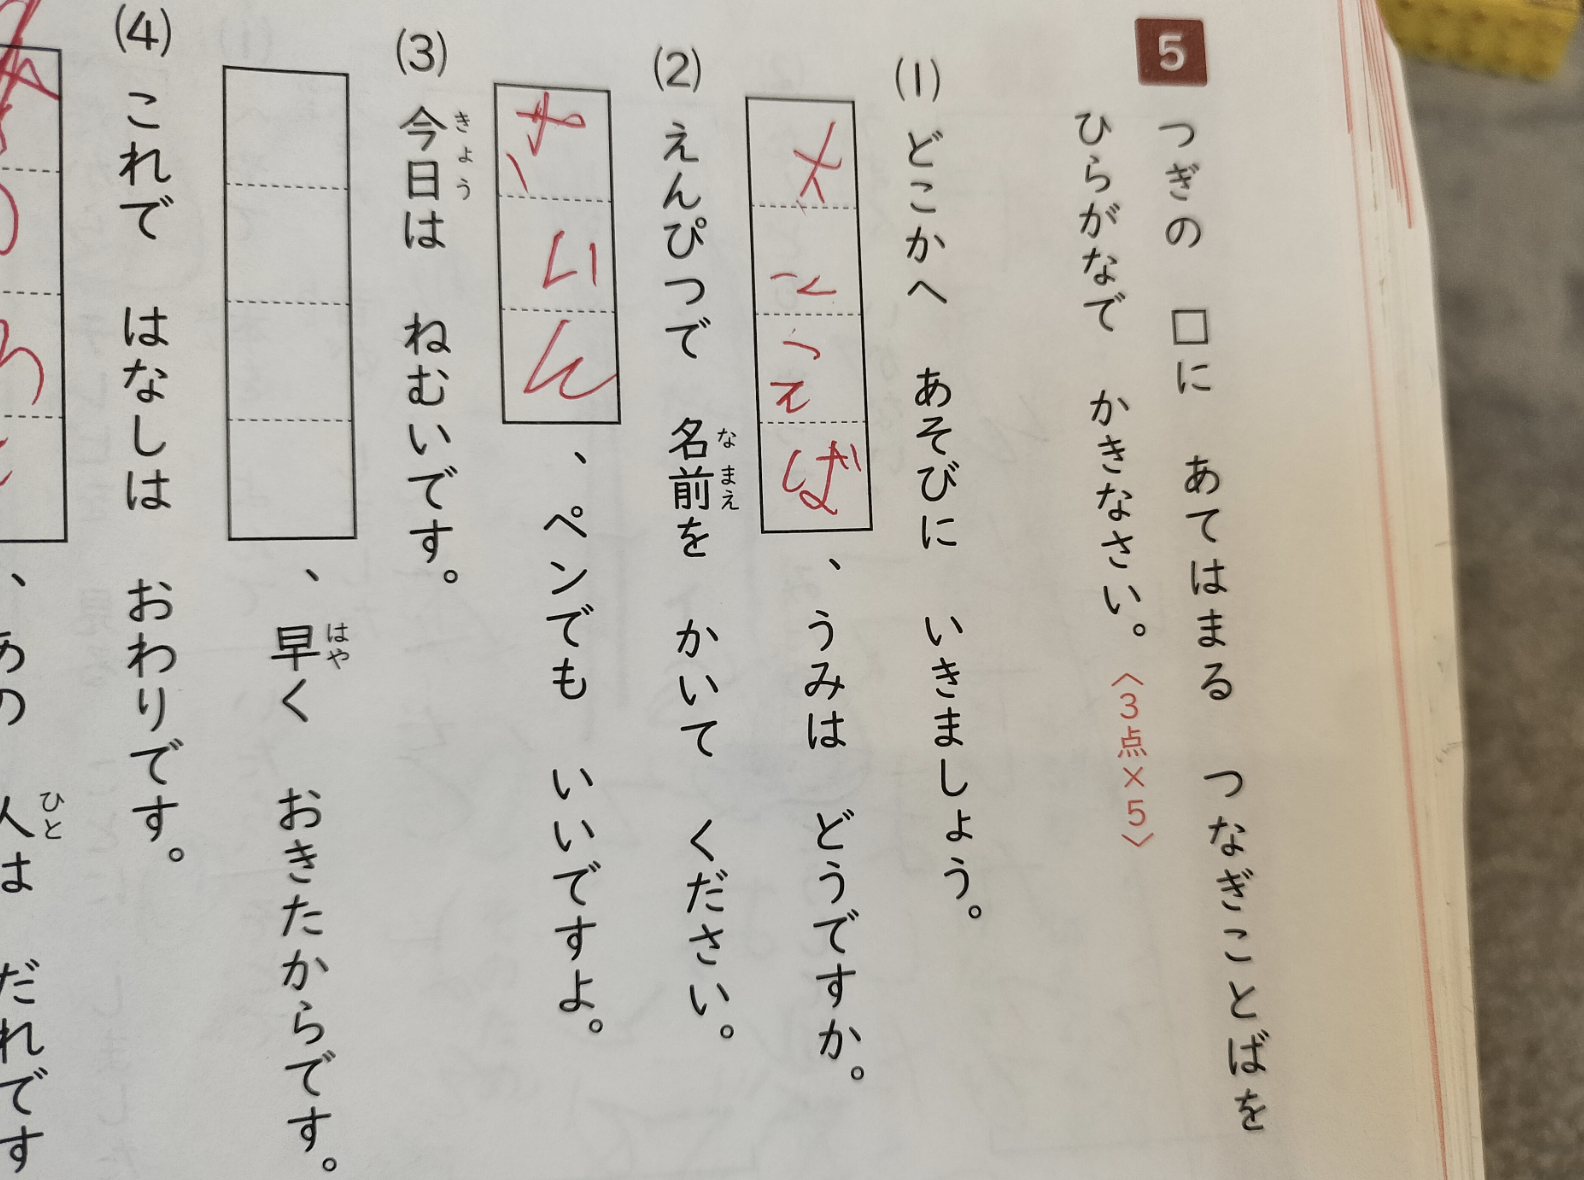 5
つぎの □に あてはまる つなぎことばを
ひらがなで かきなさい。〈3点×5〉
(1) どこかへ あそびに いきましょう。
たとえば、うみは どうですか。
(2) えんぴつで 名前を かいて ください。
なまえ
、ペンでも いいですよ。
(3) 今日は ねむいです。
きょう
、早く おきたからです。
はや
(4) これで はなしは おわりです。
、あの 人は だれです
ひと